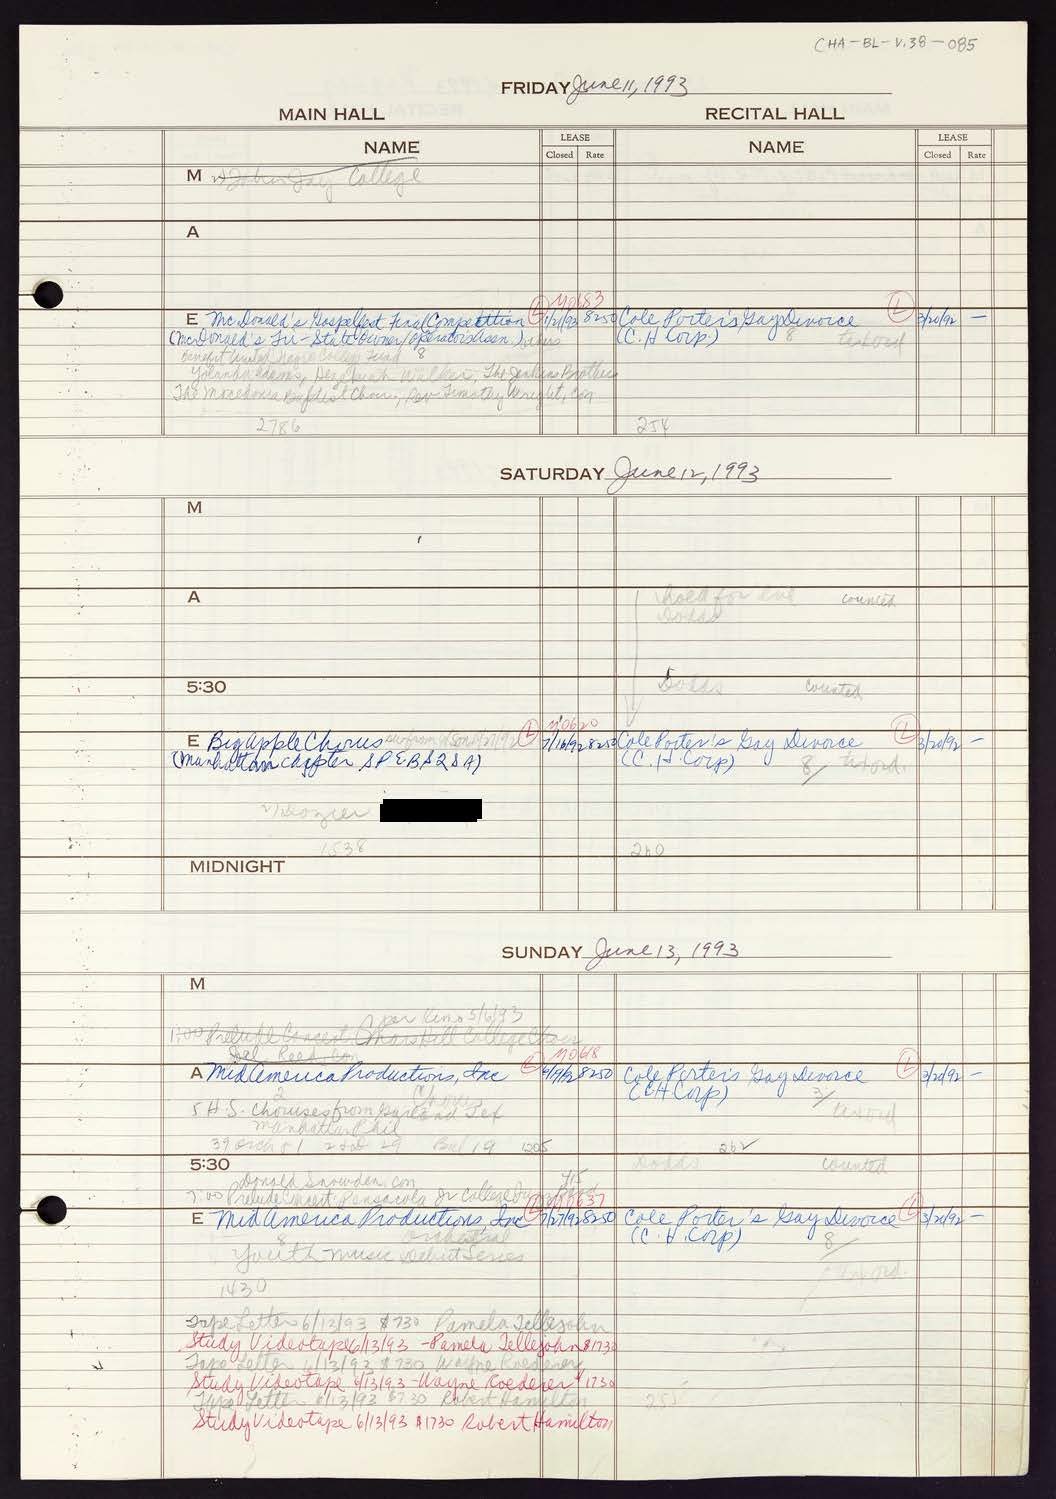 CHA-BL-V.38-085
FRIDAY June 11, 1993
MAIN HALL RECITAL HALL
NAME LEASE Closed Rate NAME LEASE Closed Rate
M John Jay College
A
M0683
E McDonald's Gospelfest Final Competition L 1/21/92 8250 Cole Porter's Gay Divorce L 3/20/92 —
(McDonald's Tri-State Owner/Operators Assn.) 8 (C.H Corp.) 8
Benefit United Negro College Fund
Yolanda Adams, Hezekiah Walker, The Jenkins Brothers
The Macedonia Baptist Choir, Rev Timothy Wright, con
2786 254
SATURDAY June 12, 1993
M
A hold for eve counted
Dodds
5:30 Dodds counted
M0620
E Big Apple Chorus L 7/16/92 8250 Cole Porter's Gay Divorce L 3/20/92 —
(Manhattan chapter SPEBSQSA) (C.H Corp) 8/
1538 260
MIDNIGHT
SUNDAY June 13, 1993
M
per Kim 5/6/93
1:00 Prelude Concert Mars Hill College Choir
Joel Reed, con
M0618
A MidAmerica Productions, Inc L 8250 Cole Porter's Gay Divorce L 3/20/92 —
2 Chorus (CH Corp) 3/
5 H.S. Choruses from Garland Tex
Manhattan Phil
39 Orch 51 29 Bal 19 1205 262
5:30 Dodds counted
Donald Snowden, con
7:00 Prelude Concert: Pensacola Jr College
M0637
E MidAmerica Productions, Inc L 7/27/92 8250 Cole Porter's Gay Divorce L 3/20/92 —
8 Orchestral (C.H Corp) 8/
Youth Music Debut Series
1430
Tape Letter 6/12/93 $730 Pamela Tellejohn
Study Videotape 6/13/93 - Pamela Tellejohn $1730
Tape Letter 6/13/93 $730 Wayne Roederer
Study Videotape 6/13/93 - Wayne Roederer $1730
Tape Letter 6/13/93 $730 Robert Hamilton 255
Study Videotape 6/13/93 $1730 Robert Hamilton